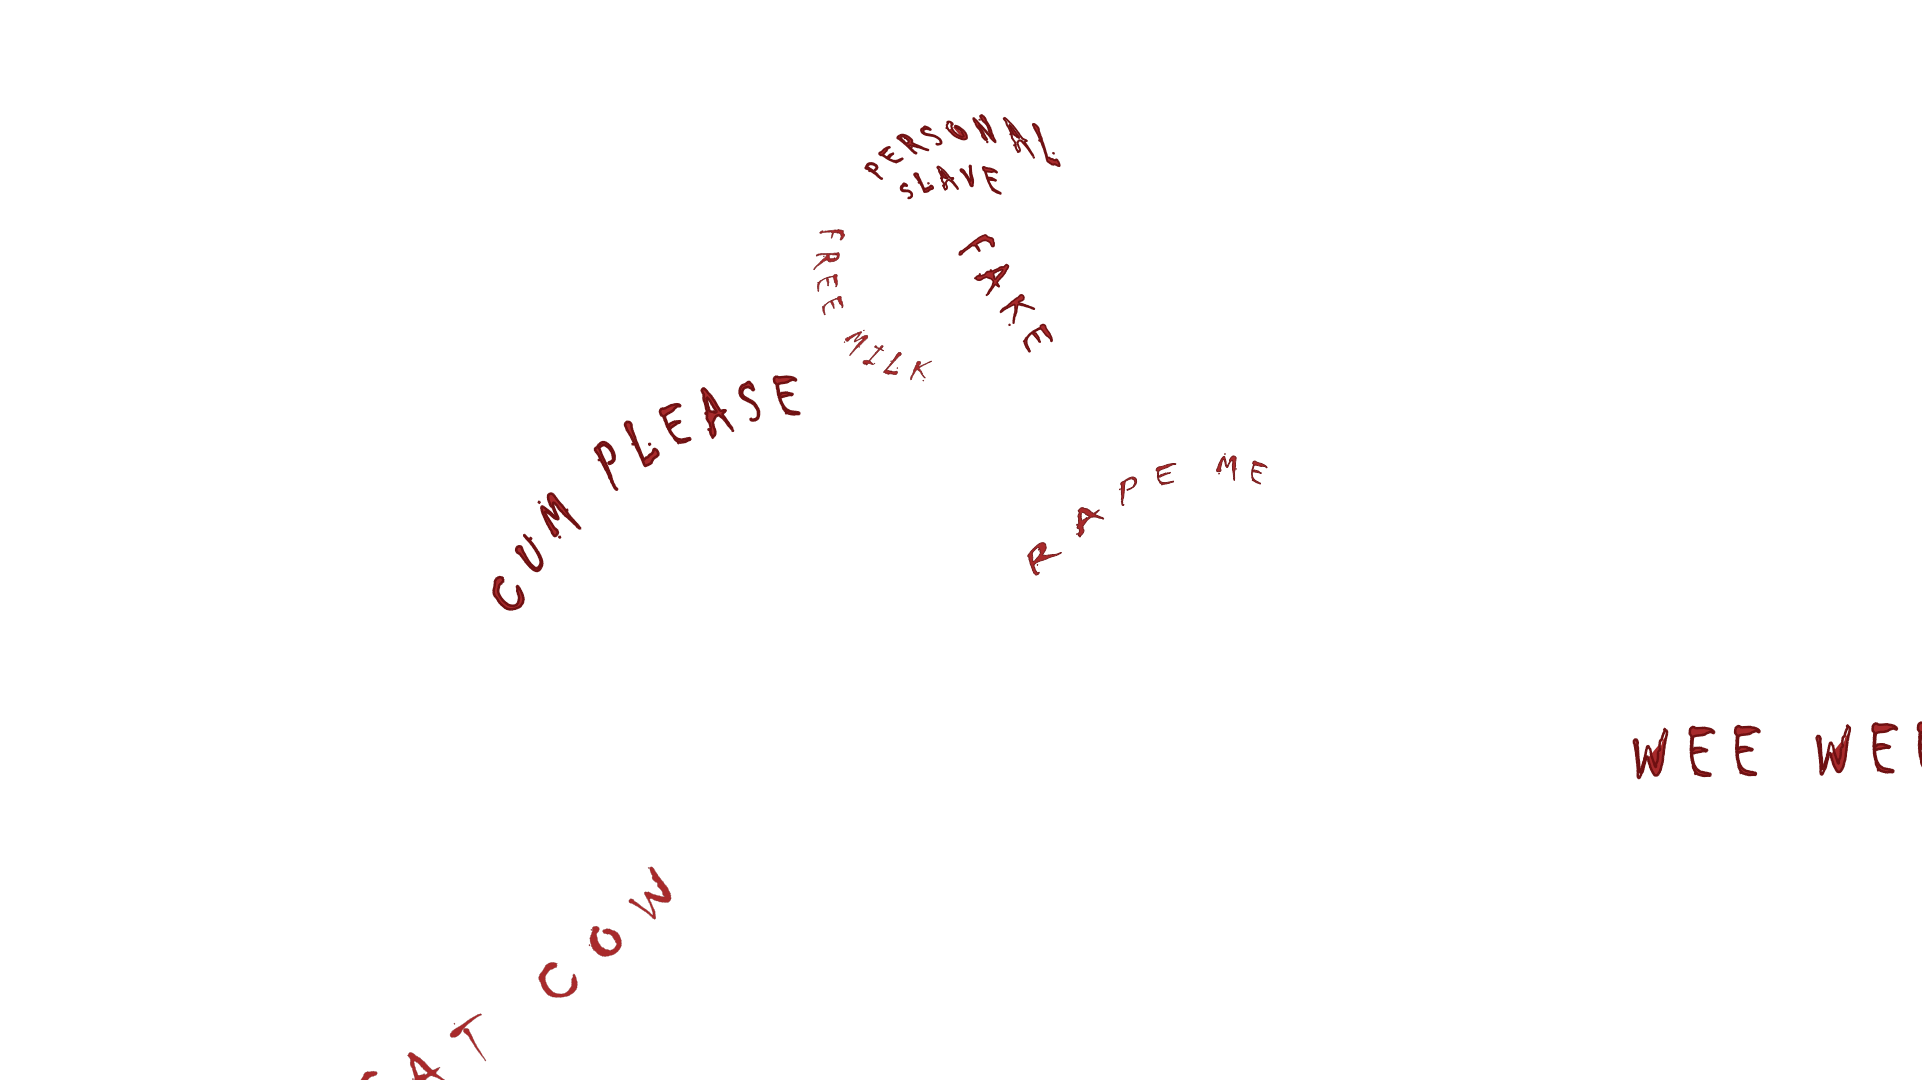 PERSONAL
SLAVE
FREE MILK
FAKE
CUM PLEASE
RAPE ME
WEE WEE
FAT COW